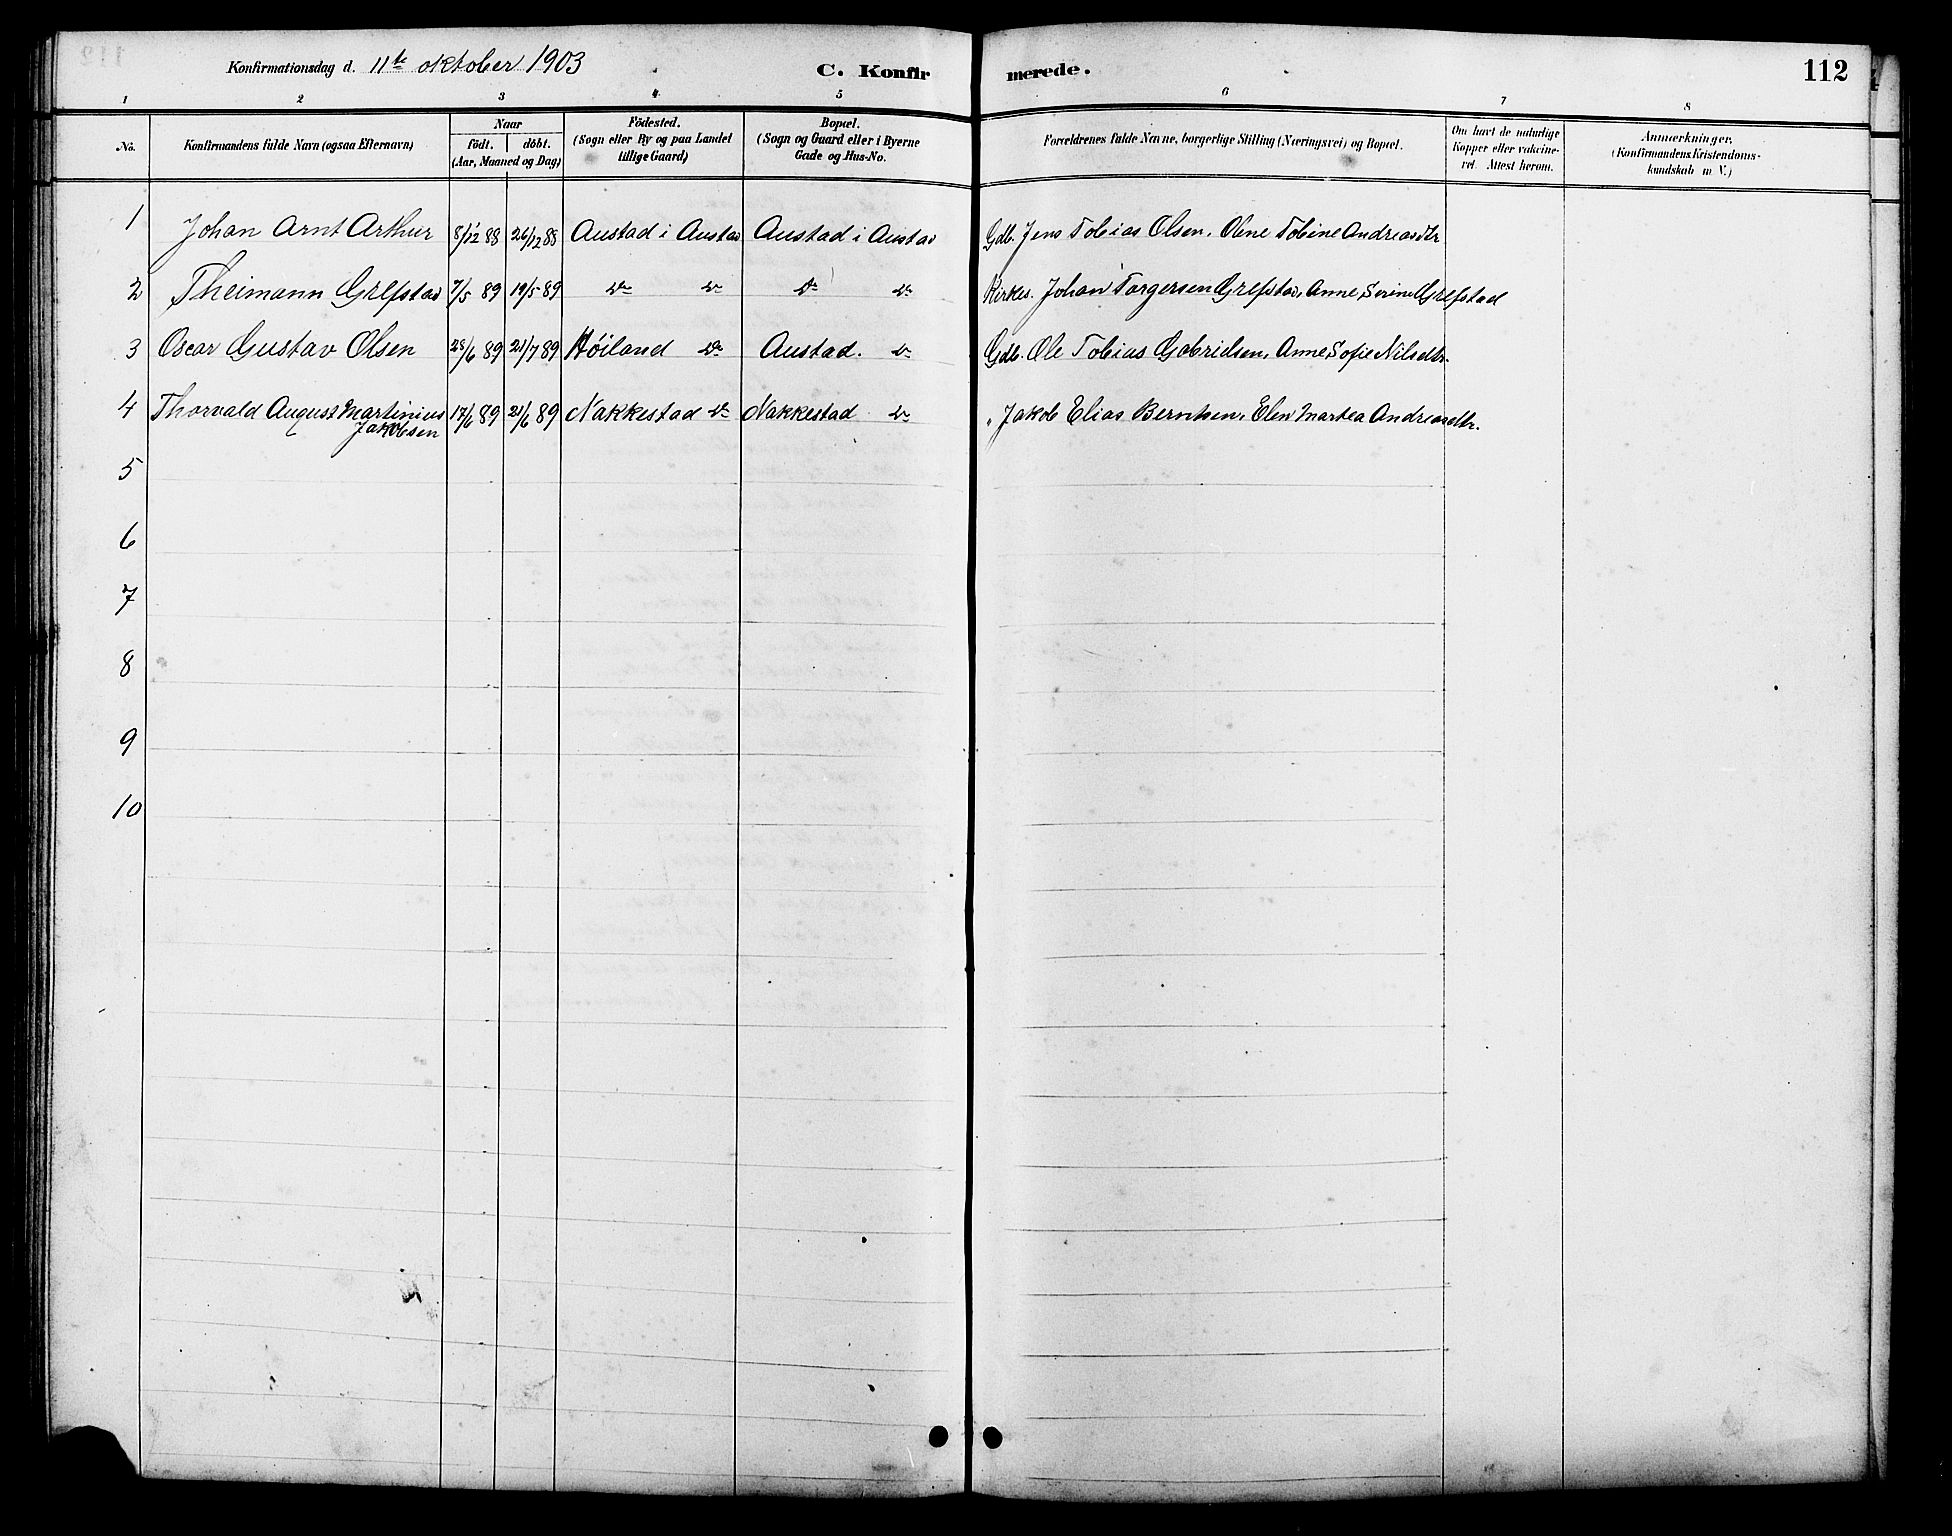 Konfirmationsdag d. 11te oktober 1903 C. Konfirmerede. 112
1 2 3 4 5 6 7 8
No. Konfirmandens fulde Navn (ogsaa Efternavn)
Naar
födt. döbt.
(Aar, Maaned og Dag)
Födested.
(Sogn eller By og paa Landet
tillige Gaard)
Bopæl.
(Sogn og Gaard eller i Byerne
Gade og Hus-No.
Forældrenes fulde Navne, borgerlige Stilling (Næringsvei) og Bopæl.
Om havt de naturlige
Kopper eller vakcine-
ret. Attest herom.
Anmærkninger,
(Konfirmandens Kristendoms-
kundskab m. V.)
1 Johan Arnt Arthur 8/12 88 26/12 88 Austad i Austad Austad i Austad Gdb. Jens Tobias Olsen, Olene Tobine Andreasdtr
2 Theimann Grefstad 7/5 89 19/5 89 do do do do Kirkes. Johan Torgersen Grefstad, Anne Serine Grefstad
3 Oscar Gustav Olsen 28/6 89 21/7 89 Höiland do Austad. do Gdb. Ole Tobias Gabrielsen, Anne Sofie Nilsdtr.
4 Thorvald August Martinius 17/6 89 21/6 89 Nakkestad do Nakkestad do " Jakob Elias Berntsen, Elen Martea Andreasdtr.
Jakobsen
5
6
7
8
9
10